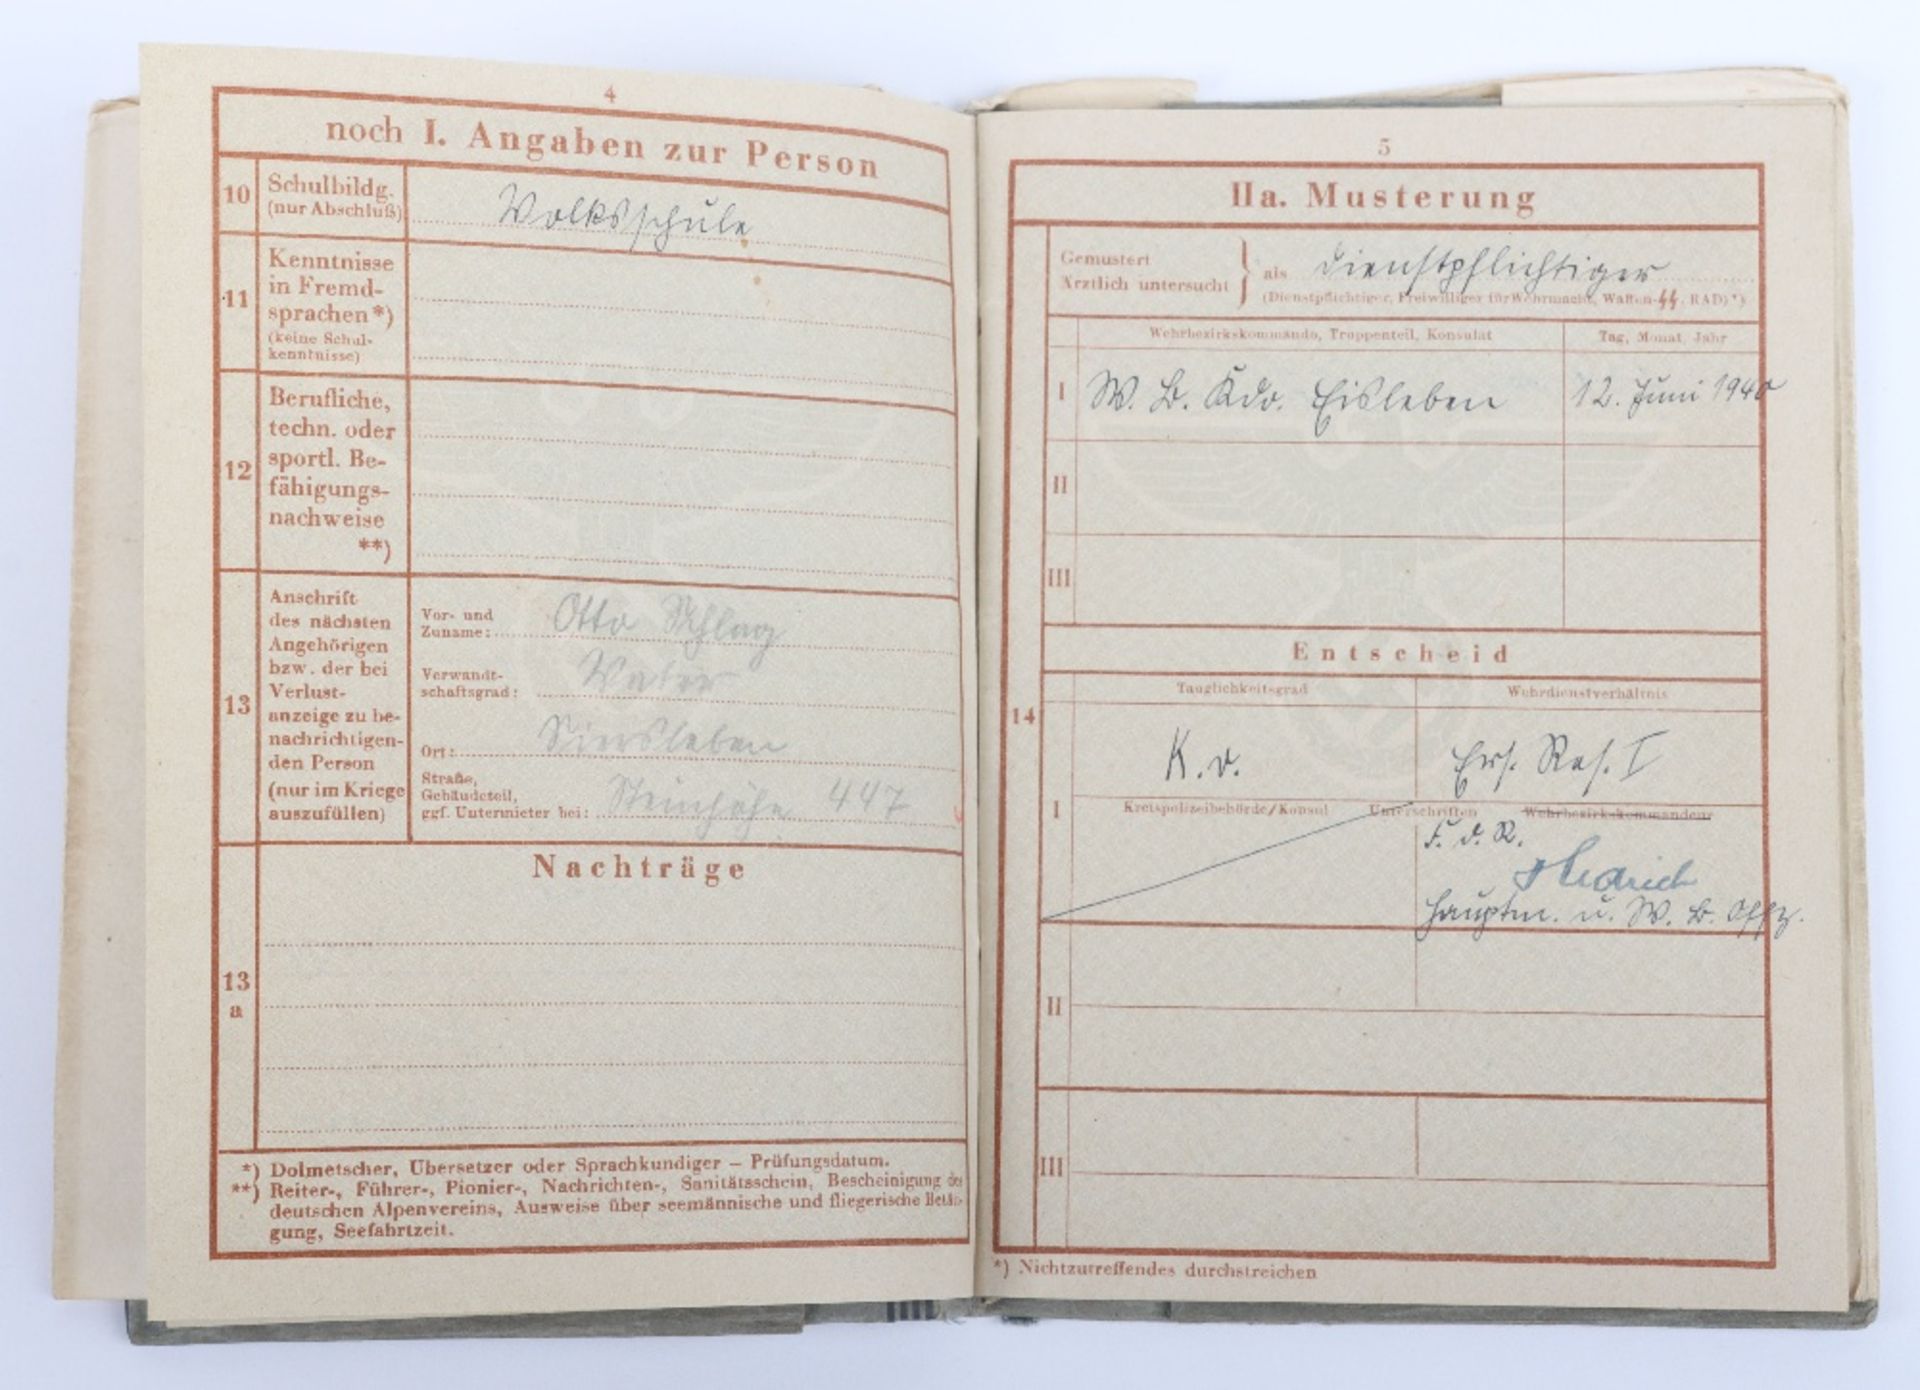 4
noch I. Angaben zur Person
10
Schulbildg.
(nur Abschluß)
Volksschule
11
Kenntnisse
in Fremd-
sprachen*)
(keine Schul-
kenntnisse)
12
Berufliche,
techn. oder
sportl. Be-
fähigungs-
nachweise
**)
13
Anschrift
des nächsten
Angehörigen
bzw. der bei
Verlust-
anzeige zu be-
nachrichtigen-
den Person
(nur im Kriege
auszufüllen)
Vor- und
Zuname: Otto Schlag
Verwandt-
schaftsgrad: Vater
Ort: Siersleben
Straße,
Gebäudeteil,
ggf. Untermieter bei: Steinhöhe 447
Nachträge
13
a
*) Dolmetscher, Übersetzer oder Sprachkundiger – Prüfungsdatum.
**) Reiter-, Führer-, Pionier-, Nachrichten-, Sanitätsschein, Bescheinigung des
deutschen Alpenvereins, Ausweise über seemännische und fliegerische Betäti-
gung, Seefahrtzeit.
5
IIa. Musterung
Gemustert
Ärztlich untersucht } als dienstpflichtiger
(Dienstpflichtiger, Freiwilliger für Wehrmacht, Waffen-SS, RAD)*)
Wehrbezirkskommando, Truppenteil, Konsulat
Tag, Monat, Jahr
I W. B. Kdo. Eisleben 12. Juni 1940
II
III
Entscheid
14
Tauglichkeitsgrad
Wehrdienstverhältnis
K.v.
Ers. Res. I
I
Kreispolizeibehörde/Konsul Unterschriften Wehrbezirkskommandeur
F. d. R.
Hauptm. u. W. B. Offz.
II
III
*) Nichtzutreffendes durchstreichen